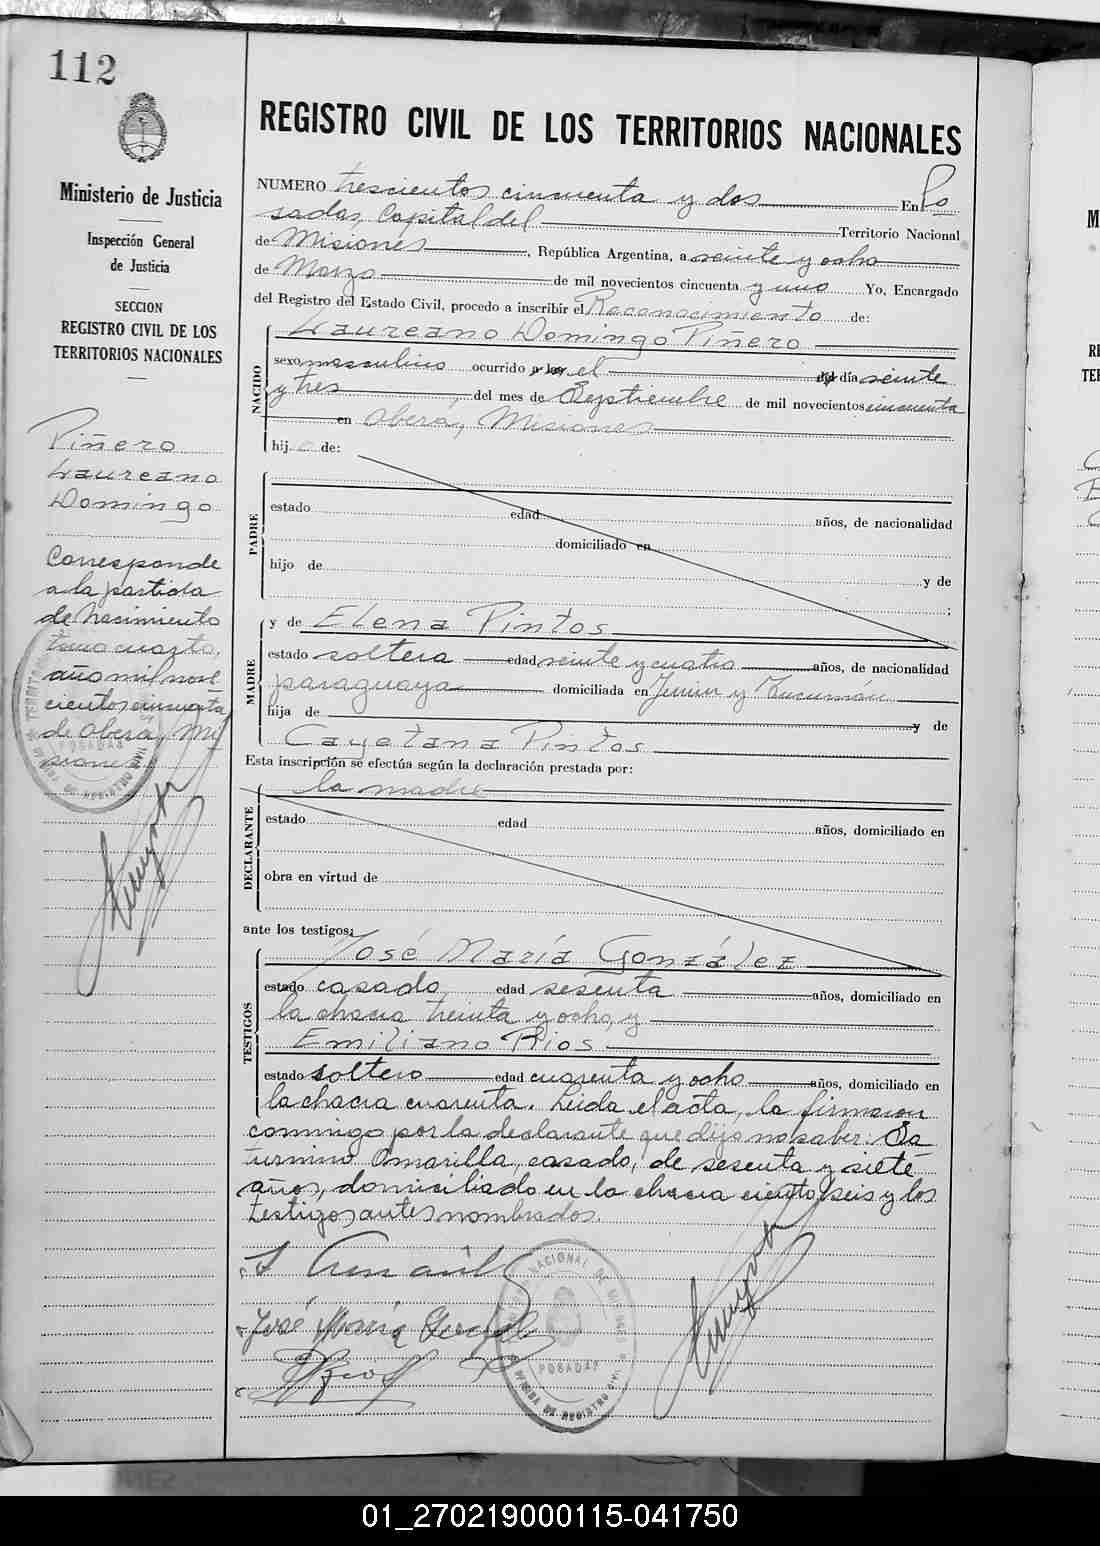 112
Ministerio de Justicia
Inspección General
de Justicia
SECCION
REGISTRO CIVIL DE LOS
TERRITORIOS NACIONALES
Piñero
Laureano
Domingo
Corresponde
a la partida
de Nacimiento
tomo cuarto,
año mil nove
cientos cincuenta
de Oberá, Mi
siones.
REGISTRO CIVIL DE LOS TERRITORIOS NACIONALES
NUMERO trescientos cincuenta y dos En Po
sadas, Capital del Territorio Nacional
de Misiones, República Argentina, a veinte y ocho
de Marzo de mil novecientos cincuenta y uno Yo, Encargado
del Registro del Estado Civil, procedo a inscribir el Reconocimiento de:
NACIDO
Laureano Domingo Piñero
sexo masculino ocurrido el día veinte
y tres, del mes de Septiembre de mil novecientos cincuenta
en Oberá, Misiones
hijo de:
PADRE
estado edad años, de nacionalidad
domiciliado en
hijo de y de
;
MADRE
y de Elena Pintos
estado soltera edad veinte y cuatro años, de nacionalidad
paraguaya domiciliada en Junin y Tucumán
hija de y de
Cayetana Pintos
Esta inscripción se efectúa según la declaración prestada por:
DECLARANTE
la madre
estado edad años, domiciliado en
obra en virtud de
ante los testigos:
TESTIGOS
José María González
estado casado edad sesenta años, domiciliado en
la chacra treinta y ocho, y
Emiliano Rios
estado soltero edad cuarenta y ocho años, domiciliado en
la chacra cuarenta. Leida el acta, la firmaron
conmigo por la declarante que dijo no saber: Sa
turnino Amarilla, casado, de sesenta y siete
años, domiciliado en la chacra ciento seis y los
testigos antes nombrados.
José María
POSADAS
OFICINA DE REGISTRO CIVIL
01_270219000115-041750